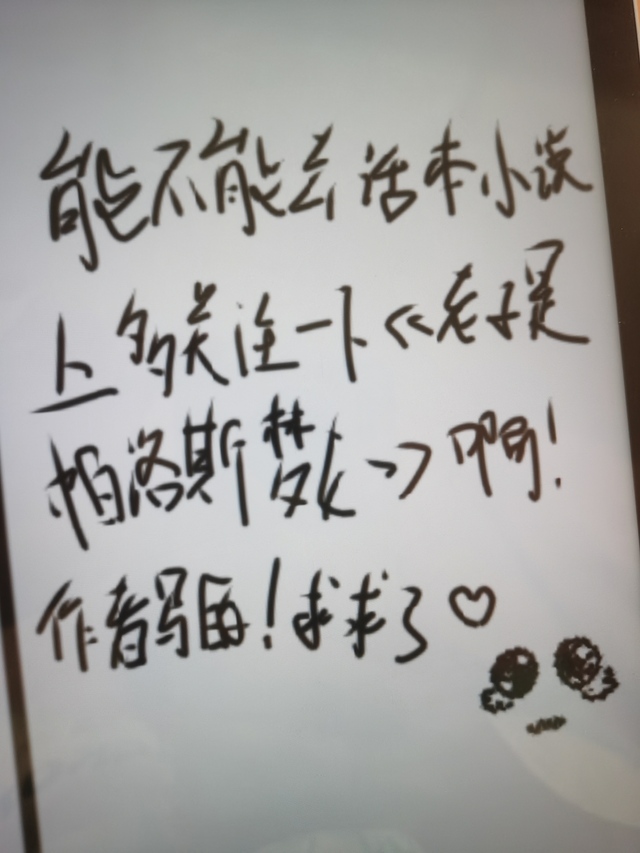 能不能去话本小说
上多关注一下《老子是
帕洛斯梦女》啊!
作者写的!求求了♡